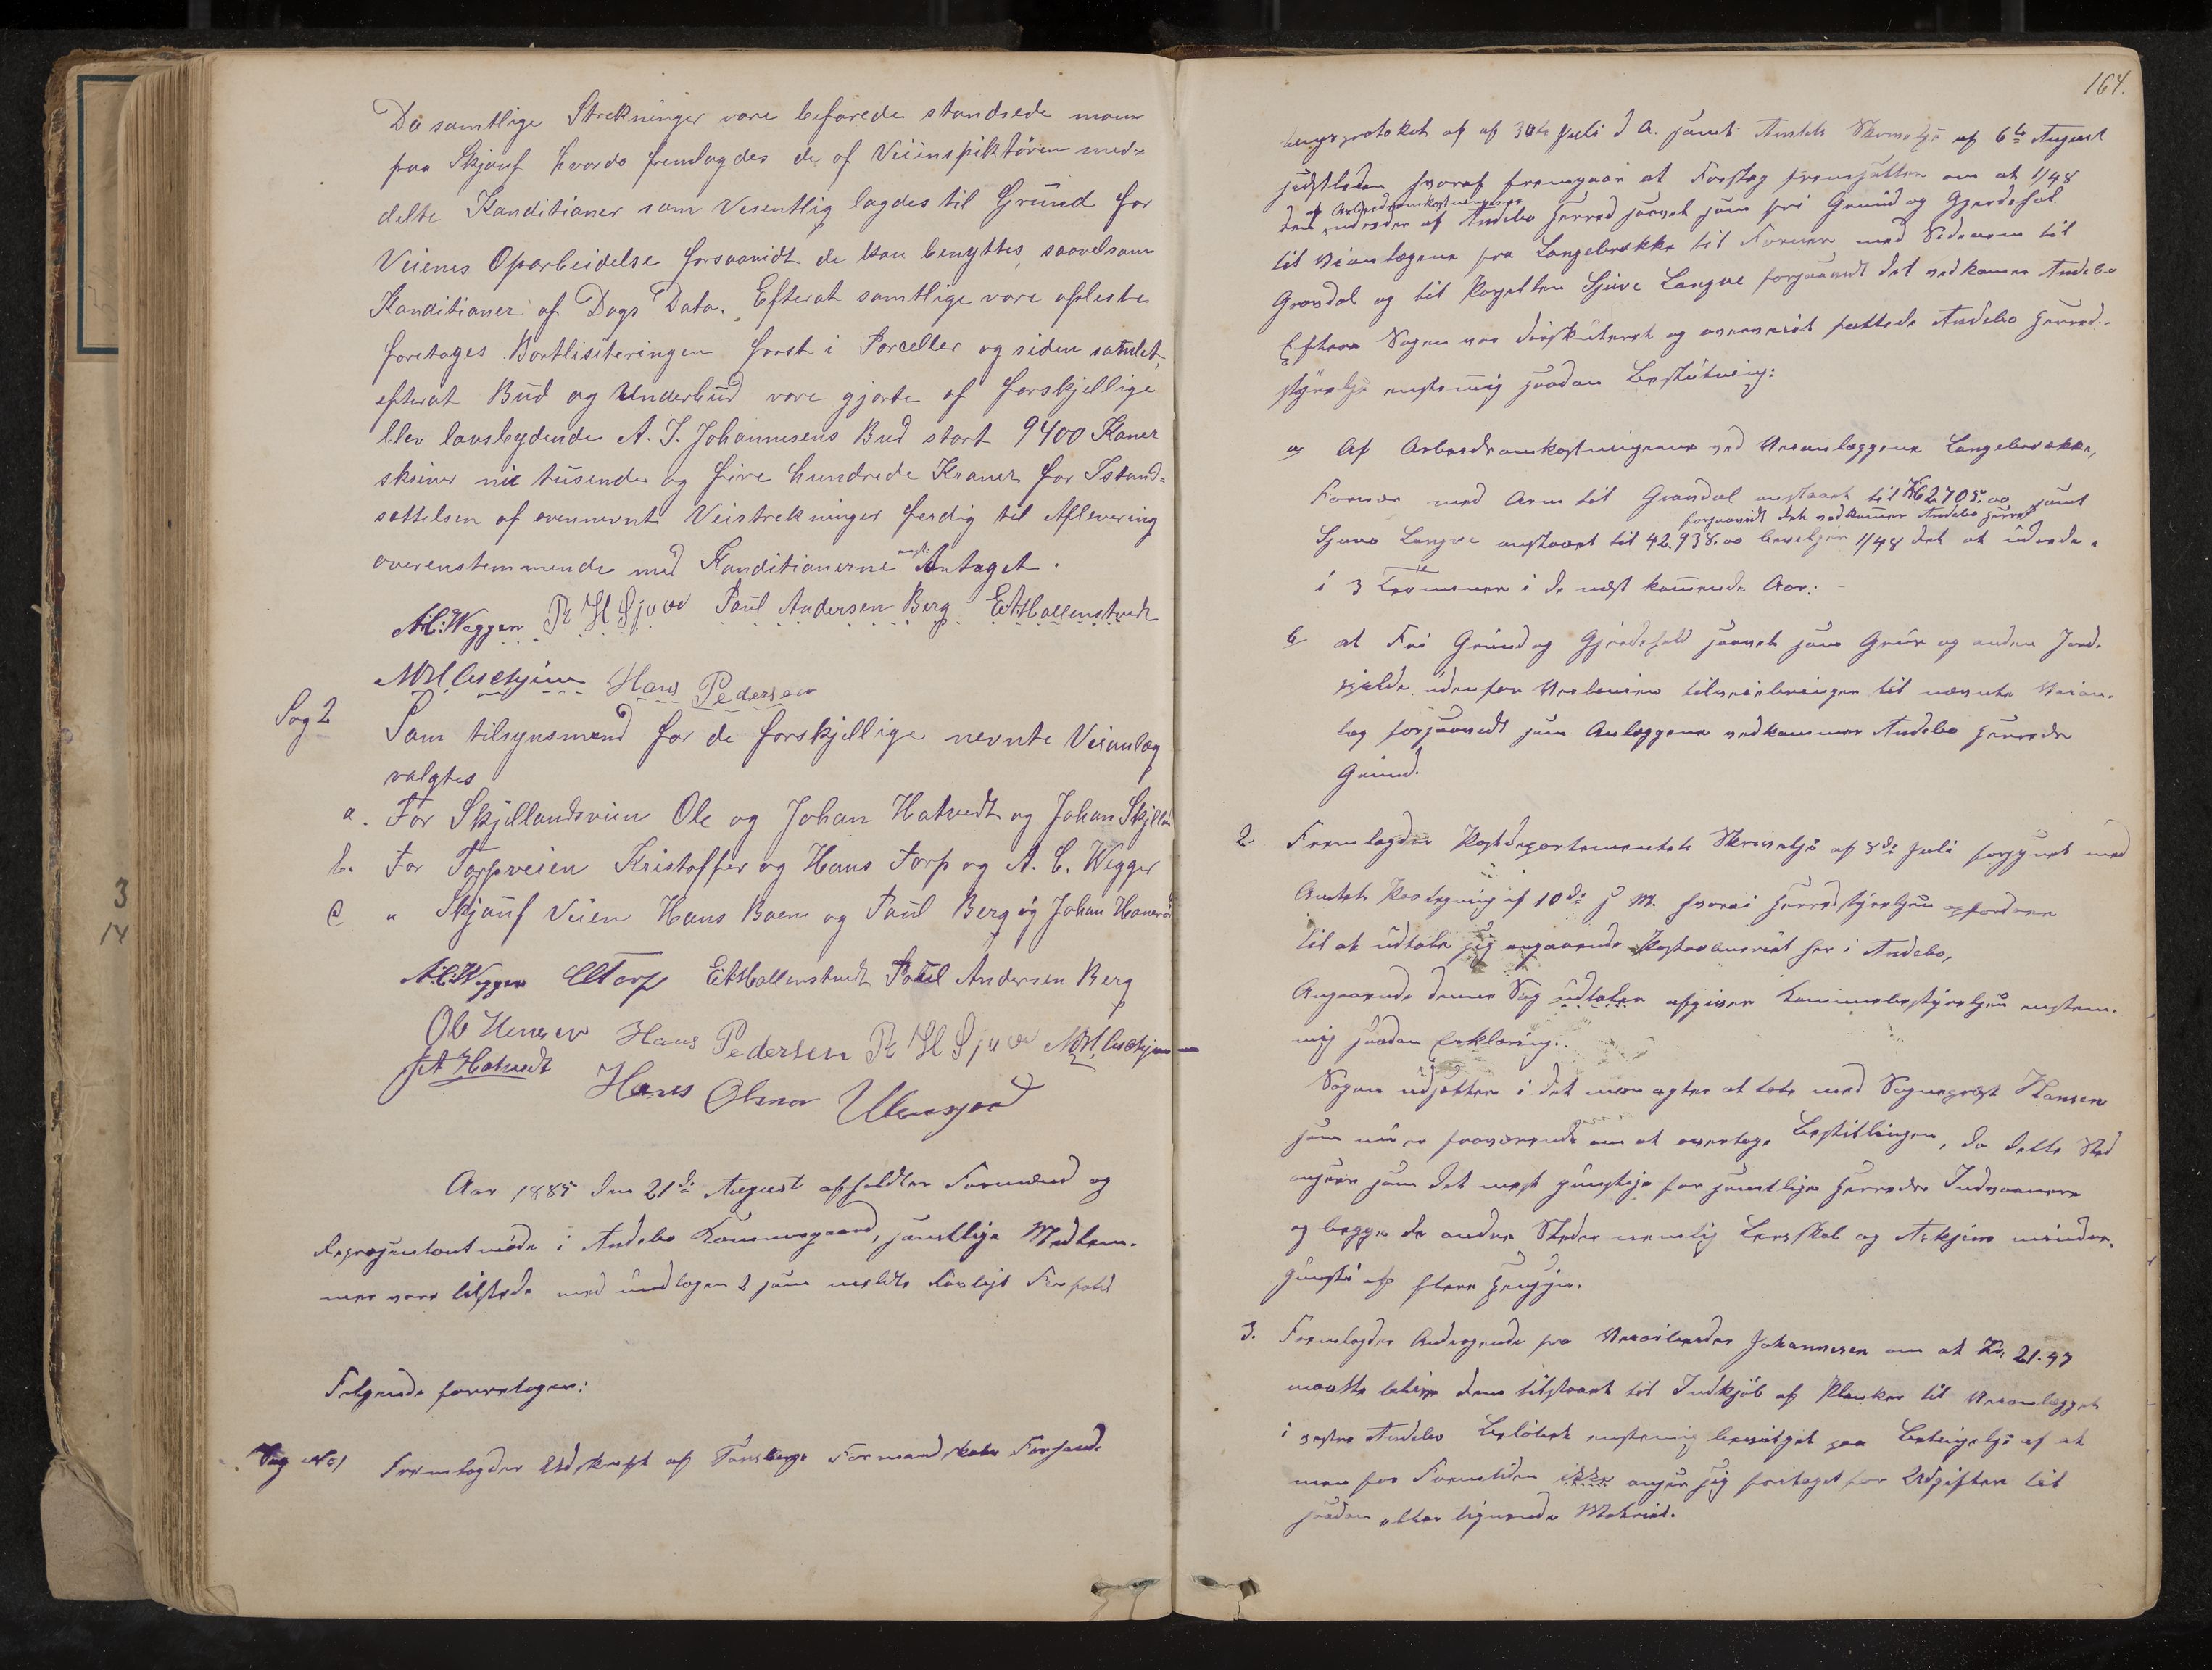 Da samtlige Strekninger vare befarede standsede man
paa Skjauf hvorda fremlagdes de af Veiinspiktören med-
delte Kanditianer som Vesentlig lagdes til Grund for
Veienes Oparbeidelse forsaavidt de kan benyttes, saavelsam
Kanditianer af Dags Dato. Efterat samtlige vare opleste
foretages Bortlisiteringen forst i Parceller og siden samlet,
efterat Bud og Underbud vare gjorte af forskjellige
blev lavsbydende A. J. Johannesens Bud stort 9400 Kaner
skriver nie tusende og fire hundrede Kraner for Istand-
settelsen af ovennevnt Veistrekninger ferdig til Aflevering
overenstemmende med Kanditianerne Antaget.
A.C. Wegger R H Sjuve Paul Andersen Berg E A Hallenstvedt
Hans Pedersen
Sag 2 Som tilsynsmend for de forskjellige nevnte Veianleg
valgtes
a. For Skjellandsveien Ole og Johan Hatvedt og Johan Skjellan
b. For Torpveien Kristoffer og Hans Torp og A. C. Wegger
C " Skjauf Veien Hans Baem og Paul Berg og Johan Hanerö
A.C. Wegger C Torp E A Hallenstvedt Paul Andersen Berg
Ole Hansen Hans Pedersen R H Sjuve
J A Hatvedt Hans Olsen
Aar 1885 den 21de August afholdtes Formænd og
Repræsentantmöde i Andebo Kommunegaard, samtlige Medlem-
mer vare tilstede med undtagen 2 som meldte Lovligt Forfald
Følgende foretoges:
Sag No 1 Fremlagdes Udskrift af Tønsbergs Formandskabs Forhand-
164.
lingsprotokol af 30te Juli d A. samt Amtets Skrivelse af 6te August
sidstleden hvoraf fremgaar at Forslag fremsættes om at 1/48
af Arbeidsomkostningerne
den udredes af Andebo Herred saavel som fri Grund og Gjerdehol
til Veianlægene fra Langebrekke til Fornær med Sidearm til
Gravdal og til Parsellen Sjuve Langve forsaavidt det vedkommer Andebo
Efter Sagen var diskuteret og overveiet fattede Andebo Herred-
styrelse enstemmig saadan Beslutning:
a Af Arbeidsomkostningerne ved Veianlæggene Langebrække,
Fornær med Arm til Gravdal anslaaet til 62705.00 samt
forsaavidt det vedkommer Andebo Herred
Sjuve Langve anslaaet til 42.938.00 bevilger 1/48 del at udrede
i 3 Terminer i de næst kommende Aar:
b at Fri Grund og Gjerdehold saavel som Grus og anden Jord-
fylde udenfor Veilinien tilveiebringes til nævnte Veian-
læg forsaavidt som Anlæggene vedkommer Andebo Herreds
Grund.
2. Fremlagdes Postdepartementets Skrivelse af 8de Juli forsynet med
Amtets Paategning af 10de s M. hvori Herredstyrelsen opfordres
til at udtale sig angaaende Postaabneriet her i Andebo,
Angaaende denne Sag udtaler afgiver Kommunebestyrelsen enstem-
mig saadan Erklæring.
Sagen udsættes i det man agter at tale med Sogneprest Hansen
som nu er fraværende om at overtage Bestillingen, da dette Sted
ansees som det mest gunstige for samtlige Herreds Indvaanere
og begge de andre Steder nemlig Lerskal og Askjem mindre
gunstig af flere Hensyn.
3. Fremlagdes Andragende fra Veiarbeider Johannesen om at Kr. 21.47
maatte blive dem tilstaaet til Indkjøb af Planker til Veianlægget
i vestre Andebo Beløbet enstemmig bevilget paa Betingelse af at
man for Fremtiden ikke anser sig forpligtet for Udgifter til
saadan eller lignende Materiel.